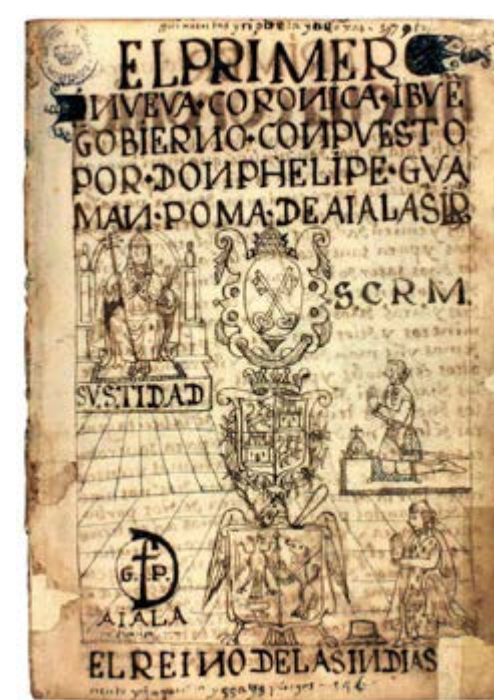 EL PRIMER
NVEVA·CORONICA·IBVĒ
GOBIERNO·CONPVESTO
POR·DON PHELIPE·GVA
MAN·POMA·DE AIALA SĪR
S.C.R.M.
SV.S.TIDAD
G. P.
AIALA
EL REINO DE LAS INDIAS